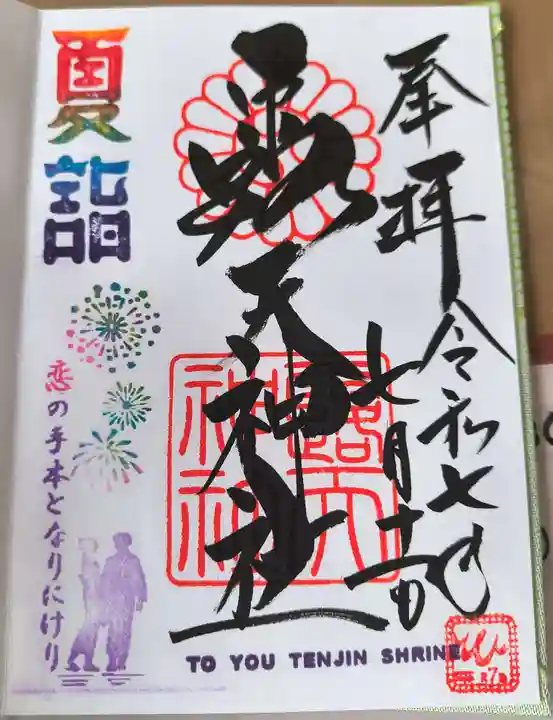 奉拝
令和七年
七月十一日
露天神社
夏詣
恋の手本となりにけり
TO YOU TENJIN SHRINE